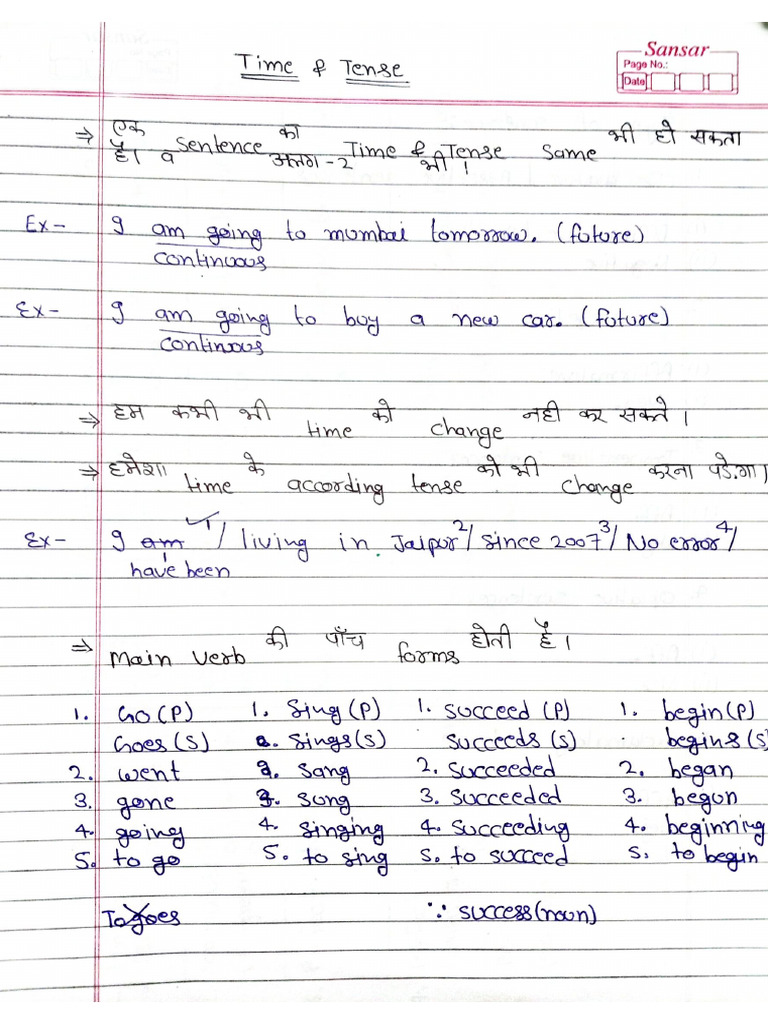 Time & Tense
Sansar
Page No.:
Date
⇒ एक Sentence का Time & Tense Same भी हो सकता
है। व अलग-2 भी।
Ex- I am going to mumbai tomorrow. (future)
continuous
Ex- I am going to buy a new car. (future)
continuous
⇒ हम कभी भी time को change नही कर सकते।
⇒ हमेशा time के according tense को भी change करना पडे.गा।
Ex- I am ✓1/ living in Jaipur 2/ since 2007 3/ No error 4/
have been
⇒ Main verb की पाँच forms होती है।
1. Go (P) 1. Sing (P) 1. Succeed (P) 1. begin (P)
Goes (S) Sings (S) Succeeds (S) begins (S)
2. went 2. Sang 2. Succeeded 2. began
3. gone 3. Sung 3. Succeeded 3. begun
4. going 4. Singing 4. Succeeding 4. beginning
5. to go 5. to sing 5. to succeed 5. to begin
To goes ∵ success (noun)